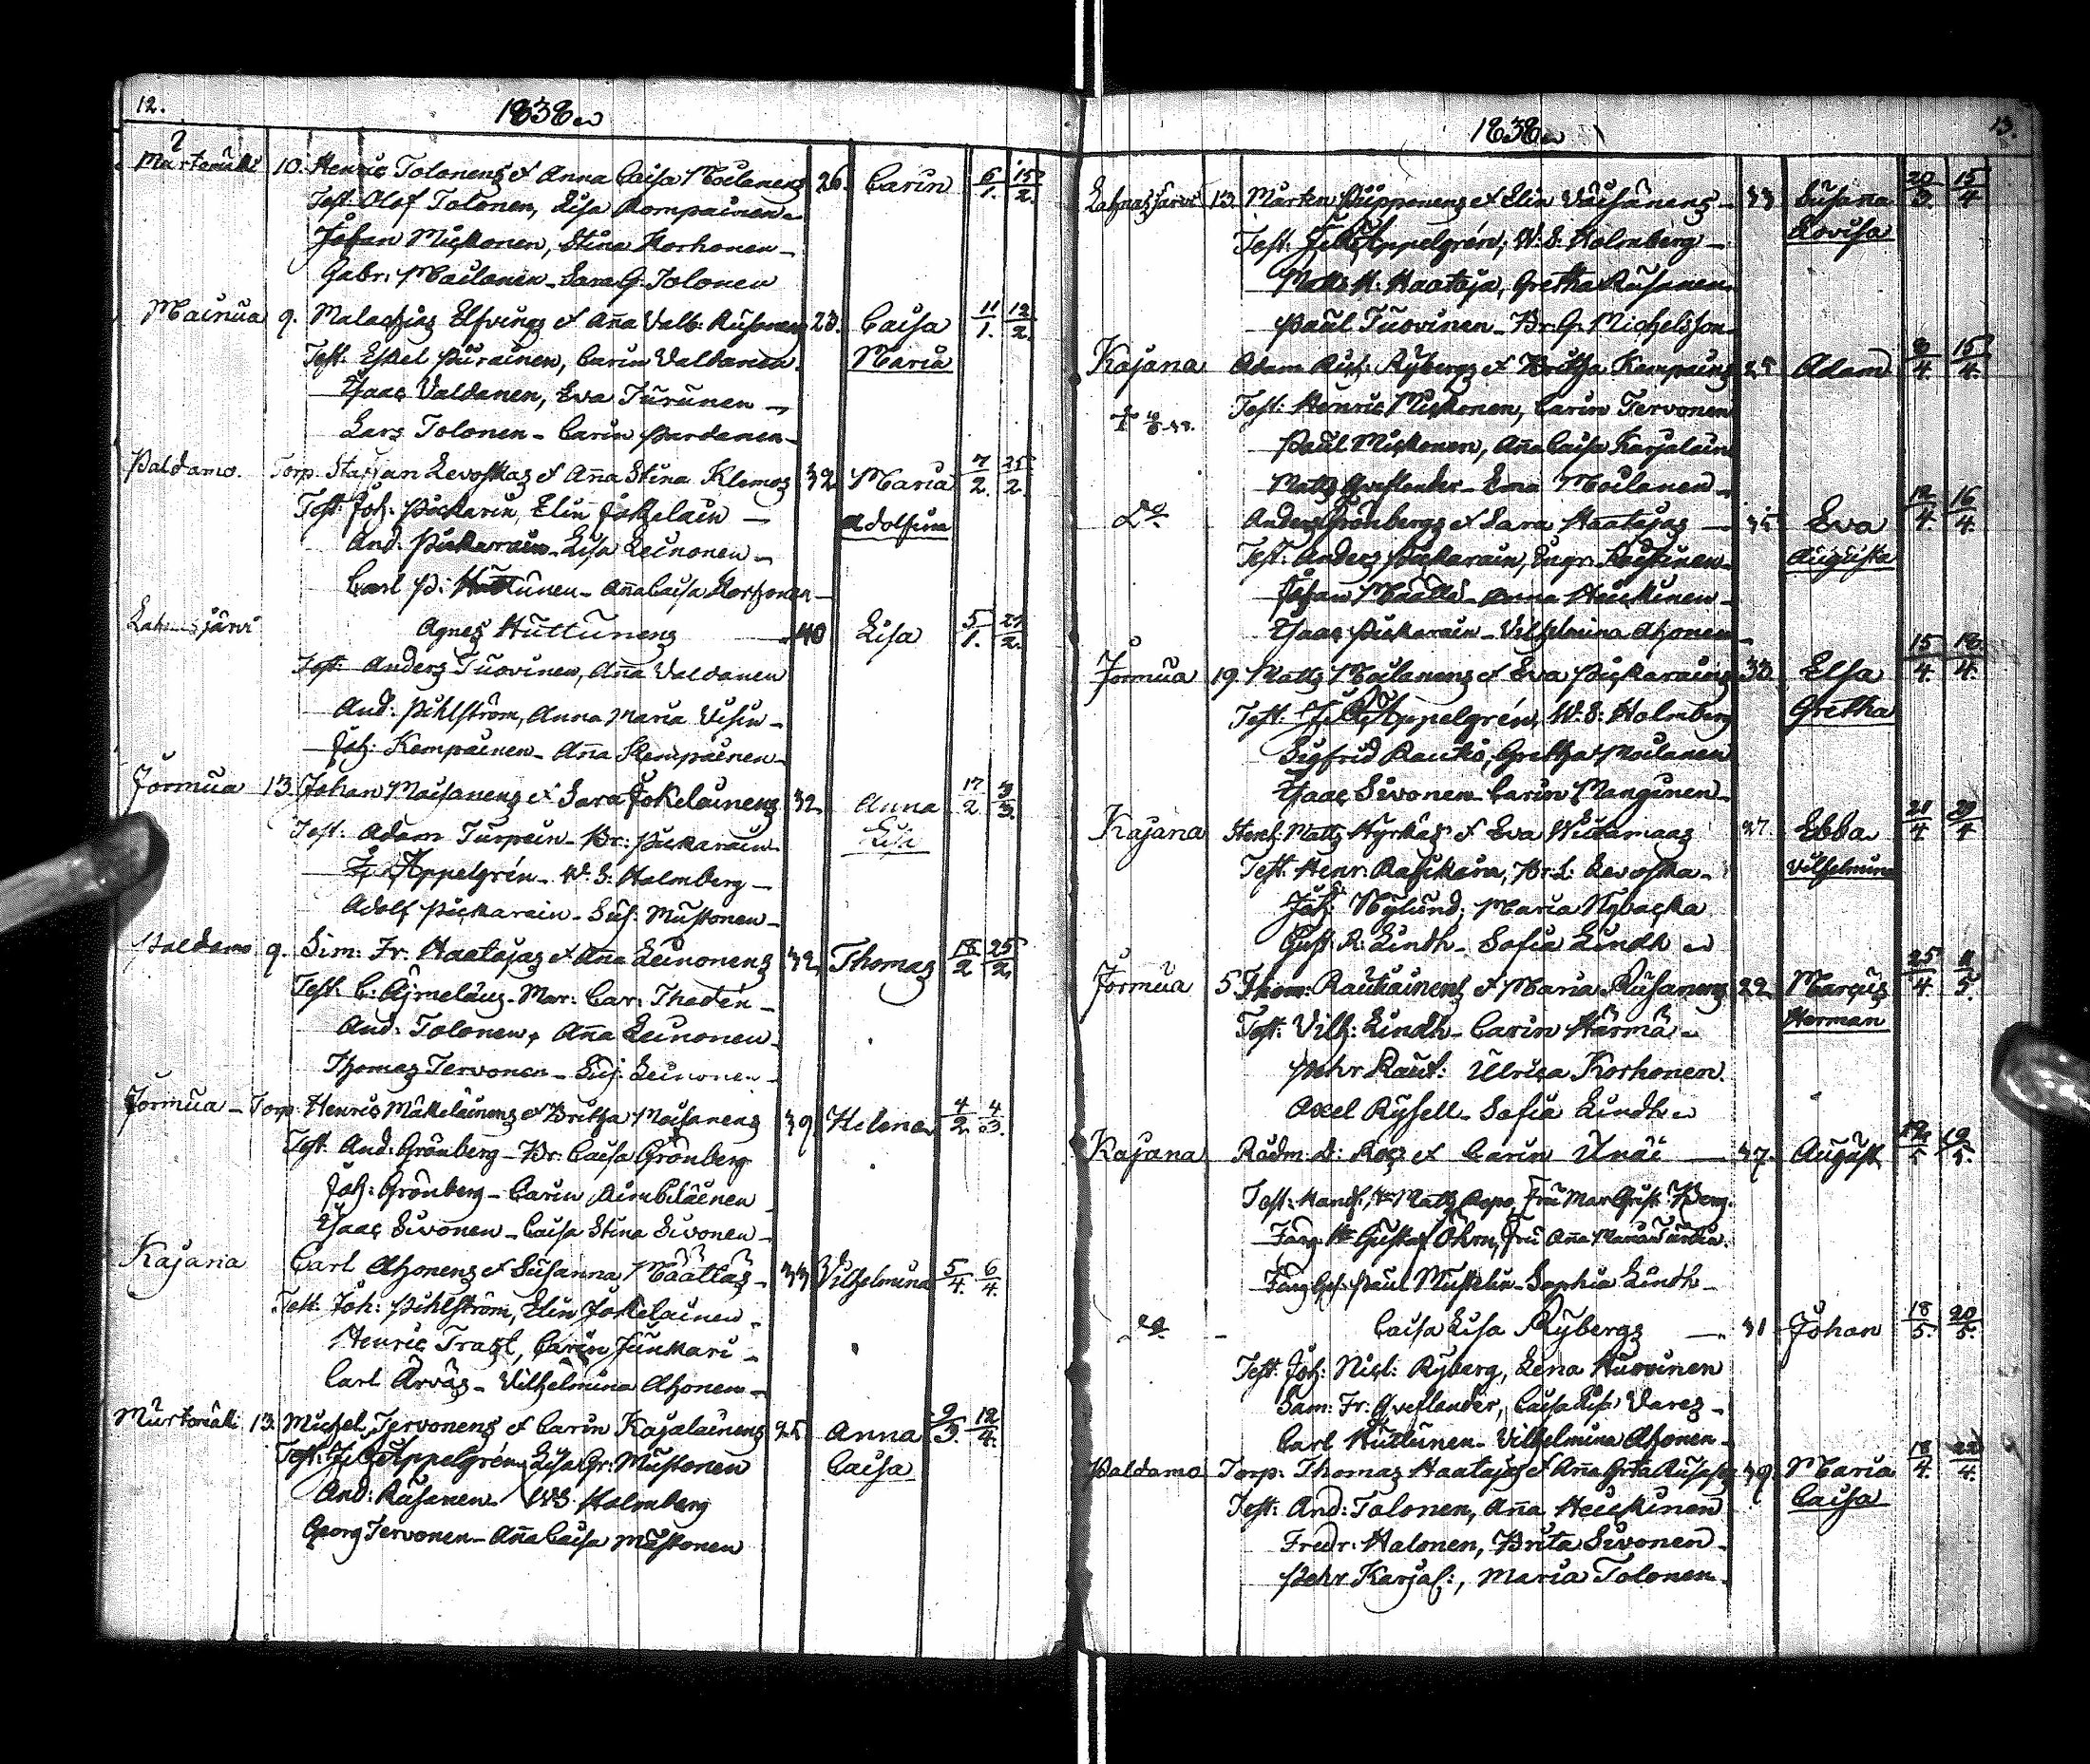 12.
1838
Murtomäki 10. Henric Tolonens & Anna Caisa Moilanens 26. Carin 6/1. 15/2.
Test: Olof Tolonen, Lisa Kompainen
Johan Mickonen, Stina Korhonen
Gabr: Moilanen - Sara G. Tolonen
Mainua 9. Malachias Elfvings & Aña Valb: Rusanens 23. Caisa 11/1. 12/2.
Test: Eskel Piirainen, Carin Valdanen Maria
Isaac Valdanen, Eva Turunen
Lars Tolonen - Carin Pardanen
Paldamo. Torp. Staffan Levoskas & Aña Stina Klemos 32 Maria 7/2. 25/2.
Test: Joh: Pickarain, Elin Jokelain Adolfina
And: Pickarain - Lisa Leinonen
Carl P: Huttunen - Aña Caisa Korhonen
järvi Agnes Huttunens 40 Lisa 5/1. 2.
Test: Anders Tuovinen, Aña Valdanen
And: Pihlström, Anna Maria
Joh: Kempainen - Aña Kempainen
Jormua 13. Johan Moisanens & Sara Jokelainens 32 Anna 17/2. 3/3.
Test: Adam Turpein - Br: Pickarain Lisa
Appelgrén - W. S: Holmberg
Adolf Pickarain - Sus: Mustonen
Paldamo 9. Sim: Fr. Haatajas & Aña Leinonens 32. Thomas 18/2 25/2.
Test: C: Ajmelæus - Mar: Car: Thodén
And: Tolonen, Aña Leinonen
Thomas Tervonen - Sus: Leinonen
Jormua - Torp. Henric Mäkeläinens & Britha Moisanens 39. Helena 4/2 4/3.
Test: And: Grönberg - Br: Caisa Grönberg
Joh: Grönberg - Carin
Isaac Sivonen - Caisa Stina Sivonen
Kajana Carl Ahonens & Susanna Määttäs 33 Vilhelmina 5/4. 6/4.
Test: Joh: Pihlström, Elin Jokelainen
Henric Trast, Carin Junkari
Carl Arväs - Vilhelmina Ahonen
Murtomäki 13. Michel Tervonens & Carin Kajalainens 25. Anna 9/3. 12/4.
Test: Appelgrén, Lisa Gr: Mustonen Caisa
And: Rusanen - WS Holmberg
Georg Tervonen - Aña Caisa Mustonen
13.
1838
13. Mårten Piipponens & Elin Väisänens 33 Susaña 20/3. 15/4
Test: Appelgrén, W. S: Holmberg Lovisa
Matts H: Haataja, Gretha Rusanen
Paul Tuovinen - Br: G: Michelsson
Kajana Adam Rybergs & Britha Kempains 25 Adam 8/4. 15/4.
Test: Henric Mickonen, Carin Tervonen
Paul Mickonen, Aña Caisa Karjalain
Matts Qveflander - Moilanen
Do. Anders Grönbergs & Sara Haatajas 35 Eva 12/4. 16/4.
Test: Anders Pickarain, Ingr: Augusta
Johan Määttä - Anna Heickinen
Isaac Pickarain - Vilhelmina Ahonen
Jormua 19. Matts Moilanens & Eva Pickarains 33. Elsa 15/4. 18/4.
Test: Appelgrén, W: S: Holmberg Gretha
Sigfrid Rautio, Gretha Moilanen
Isaac Sivonen - Carin Manginen
Kajana Matts Hyrkäs & Eva 27. Ebba 21/4 29/4
Test: Henr: Br: L: Levoska Vilhelmina
Joh: Nylund, Maria Nybacka
Gust: A: Lindh - Sofia Lindh
Jormua 5 Thom: Rautiainens & Maria Rusanens 22 Marcus 25/4. 5.
Test: Vilh: Lindh - Carin Härmä Herman
Pehr Raut: Ulrica Korhonen
Axel Rysell - Sofia Lindh
Kajana Rådm: & Carin 37. August 19/5.
Test: Matts
Gustaf Öhrn, Fru Aña Maria
Paul - Sophia Lindh
Do. Caisa Lisa Rybergs 31 Johan 18/5. 20/5.
Test: Joh: Nicl: Ryberg, Lena Hurvinen
Sam: Fr: Qveflander, Caisa Lisa
Carl Huttunen - Vilhelmina Ahonen
Paldamo Torp: Thomas Haatajas & Aña 39. Maria 18/4. 22/4.
Test: And: Tolonen, Aña Heickinen Caisa
Fredr: Halonen, Brita Sivonen
Pehr Karjal:, Maria Tolonen